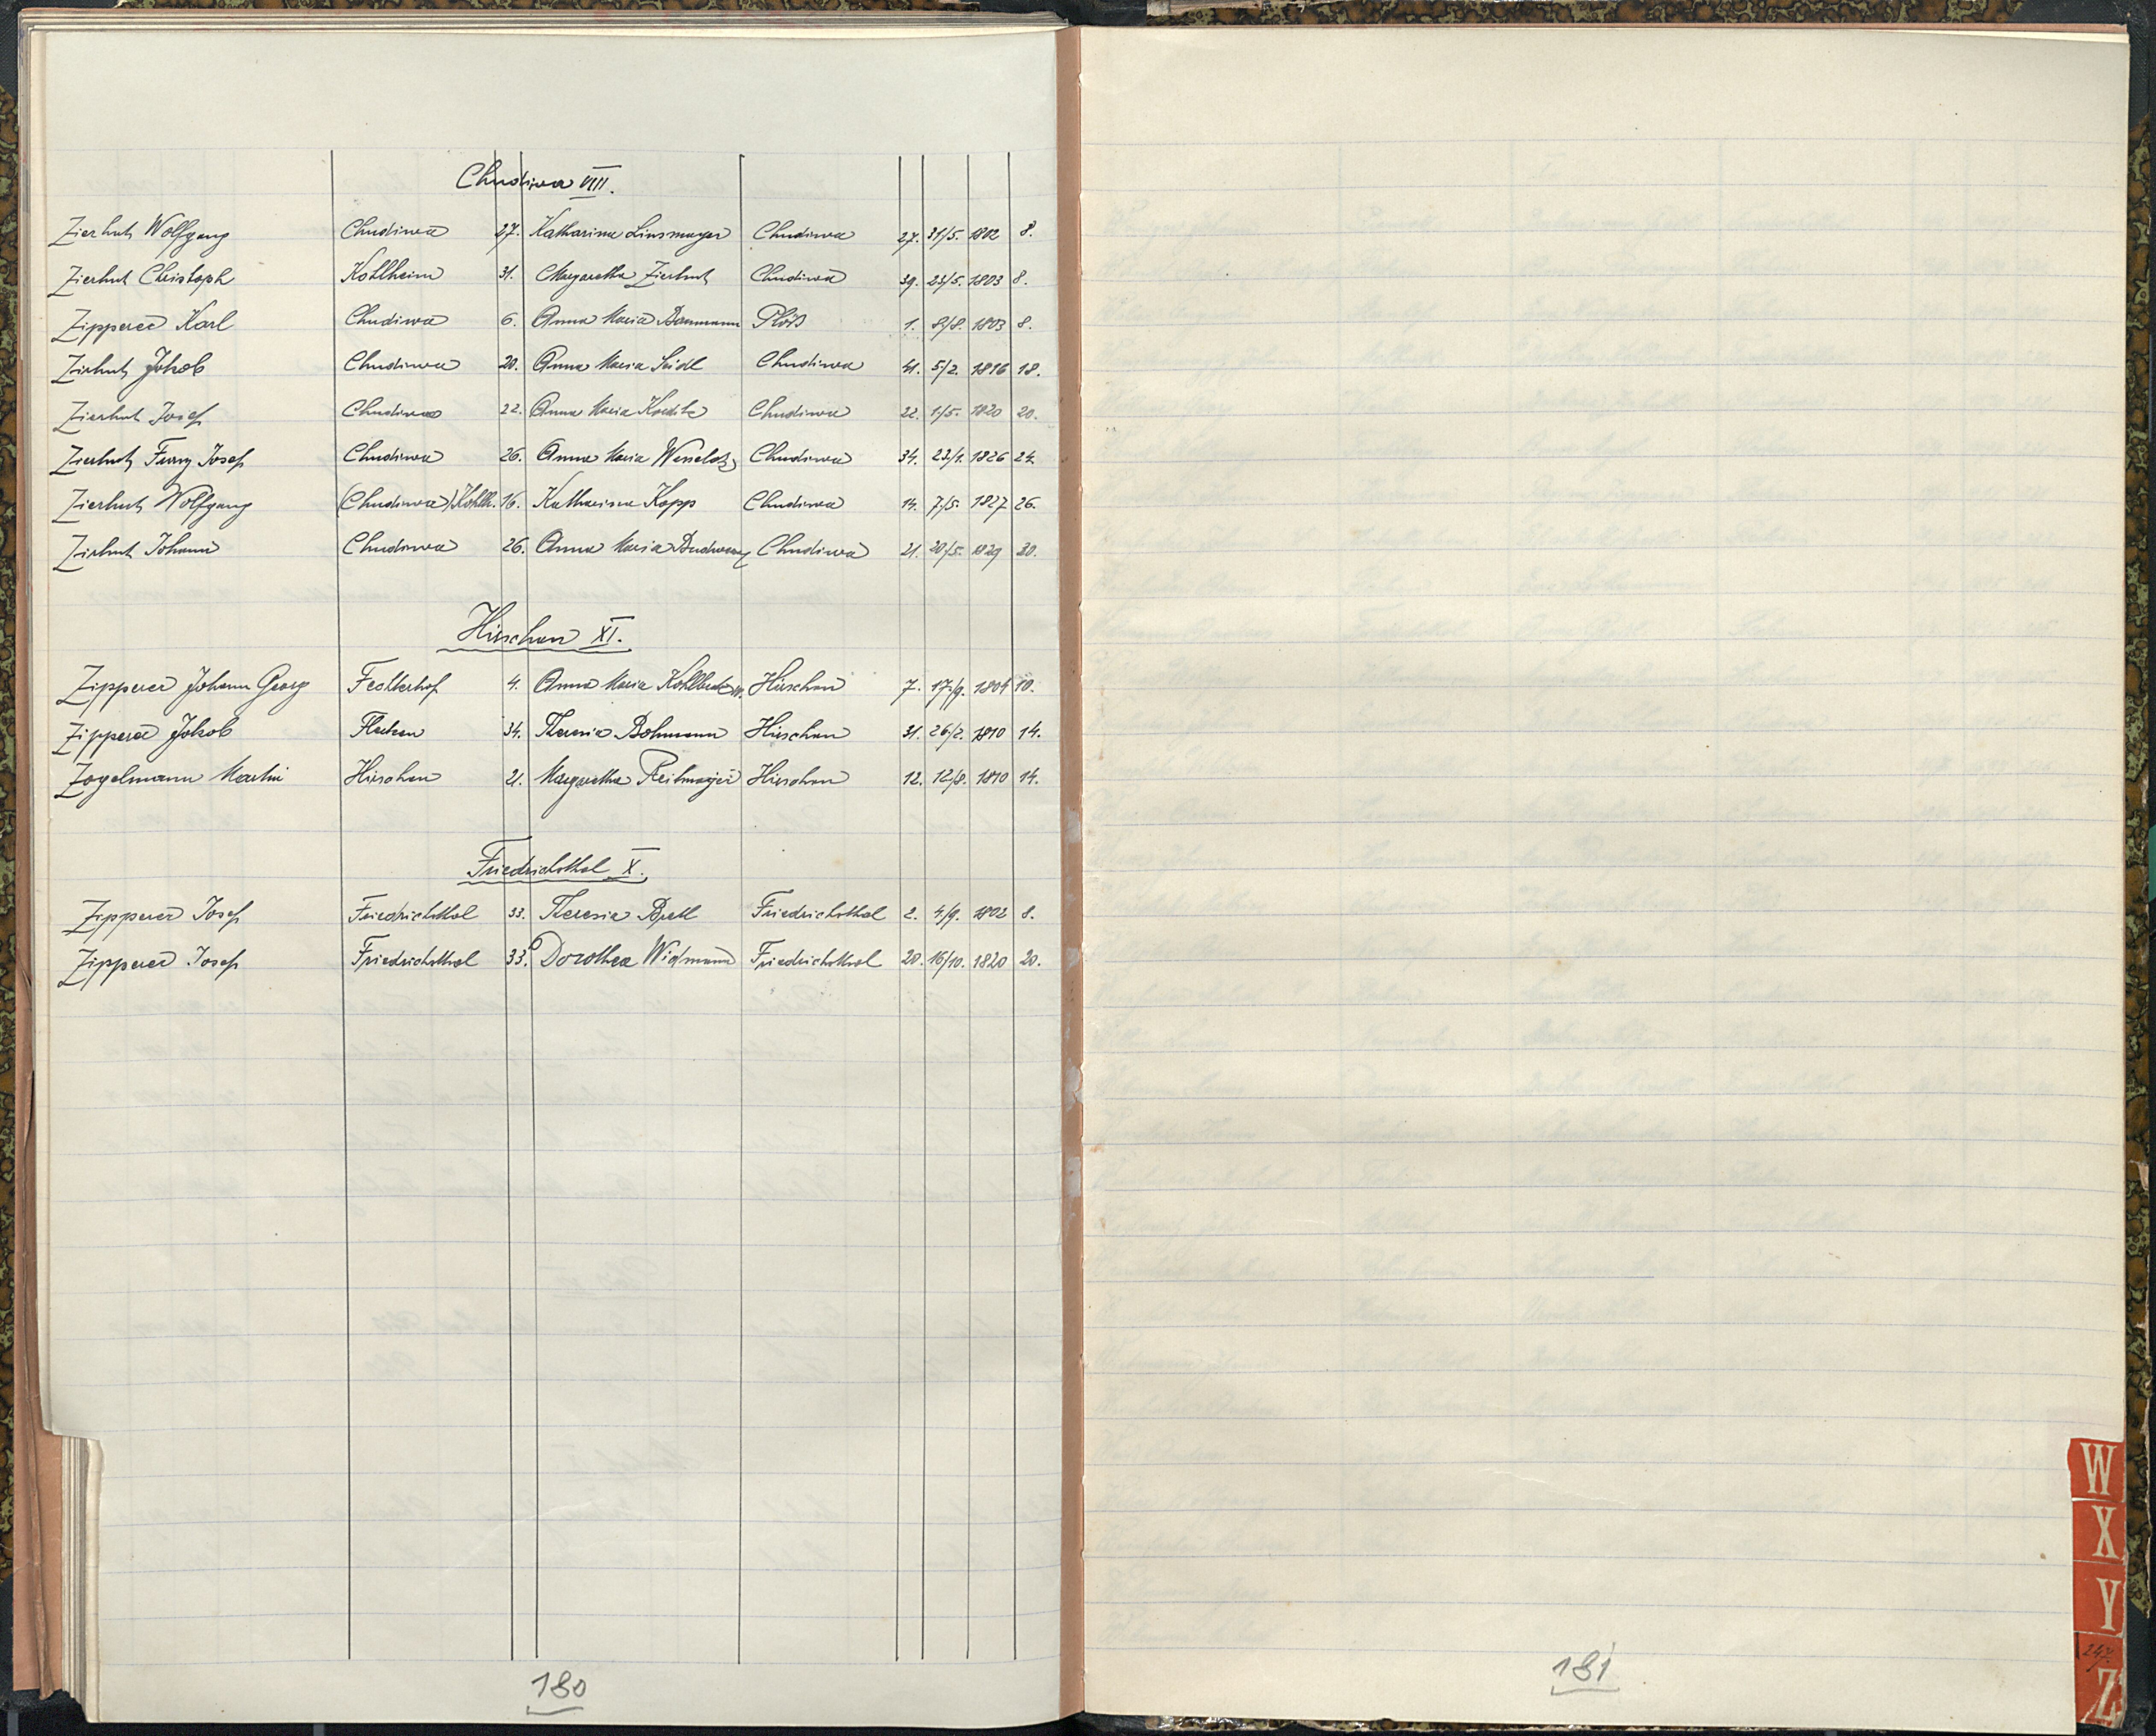 Chudiwa VIII.
Zierhut Wolfgang Chudiwa 27. Katharina Linsmayer Chudiwa 27. 31/5. 1802 8.
Zierhut Christoph Kohlheim 31. Margaretha Zierhut Chudiwa 39. 23/5. 1803 8.
Zipperer Karl Chudiwa 6. Anna Maria Baumann Plöß 1. 8/8. 1803 8.
Zierhut Jakob Chudiwa 20. Anna Maria Seidl Chudiwa 41. 5/2. 1816 18.
Zierhut Josef Chudiwa 22. Anna Maria Chudiwa 22. 1/5. 1820 20.
Zierhut Franz Josef Chudiwa 26. Anna Maria Chudiwa 34. 23/1. 1826 24.
Zierhut Wolfgang (Chudiwa) Kohlh. 16. Katharina Kopp Chudiwa 14. 7/5. 1827 26.
Zierhut Johann Chudiwa 26. Anna Maria Chudiwa 21. 20/5. 1829 30.
Hirschau XI.
Zipperer Johann Georg Fedlerhof 4. Anna Maria Hirschau 7. 17/9. 1804 10.
Zipperer Jakob Flecken 34. Theresia Bohmann Hirschau 31. 26/2. 1810 14.
Zogelmann Martin Hirschau 21. Margaretha Reitmayer Hirschau 12. 12/8. 1810 14.
Friedrichsthal X.
Zipperer Josef Friedrichsthal 33. Theresia Bretl Friedrichsthal 2. 4/9. 1802 8.
Zipperer Josef Friedrichsthal 33. Dorothea Widmann Friedrichsthal 20. 16/10. 1820 20.
180
181
W
X
Y
247.
Z